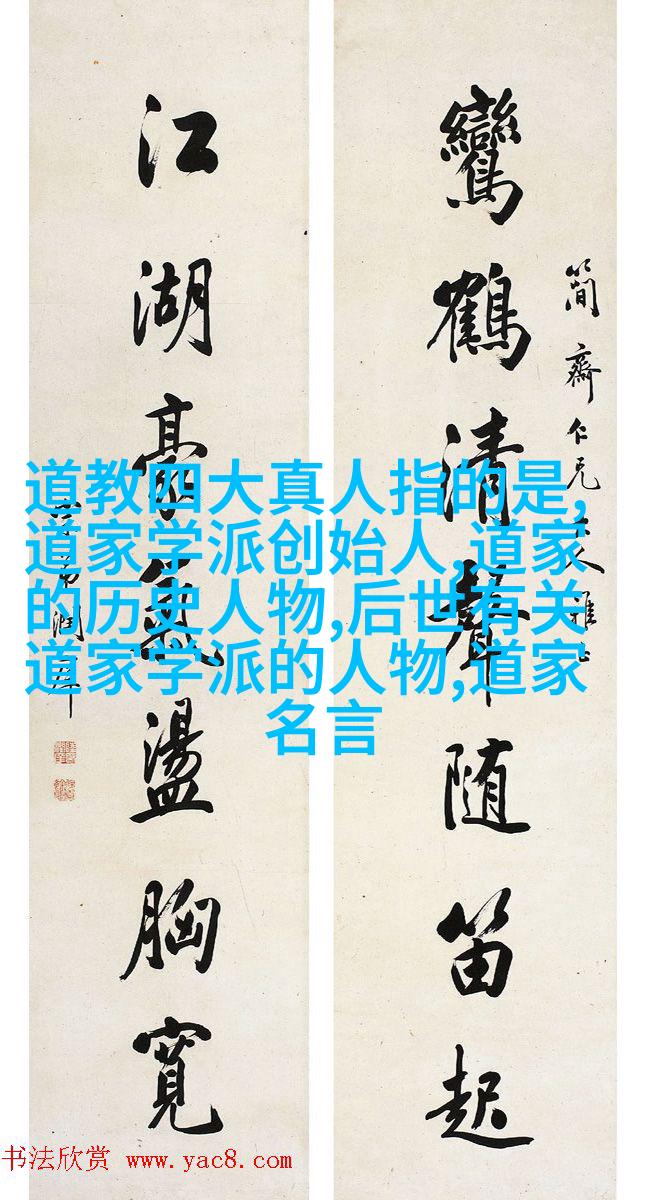 道教四大真人指的是,
道家学派创始人,道家
的历史人物,后世有关
道家学派的人物,道家
名言
簡齋仁兄大人雅正
鸞鶴清聲随笛起
江湖豪氣盪胸寬
潤庠
书法欣赏 www.yac8.com